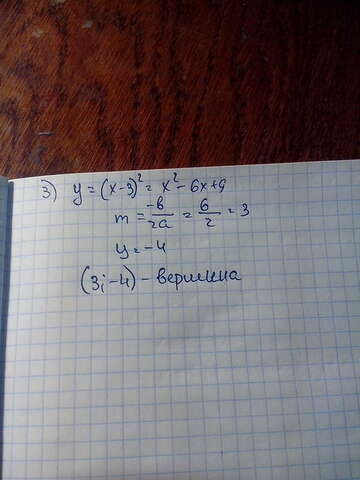 3) y = (x-3)² = x² - 6x + 9
m = -b/2a = 6/2 = 3
y = -4
(3; -4) - вершина